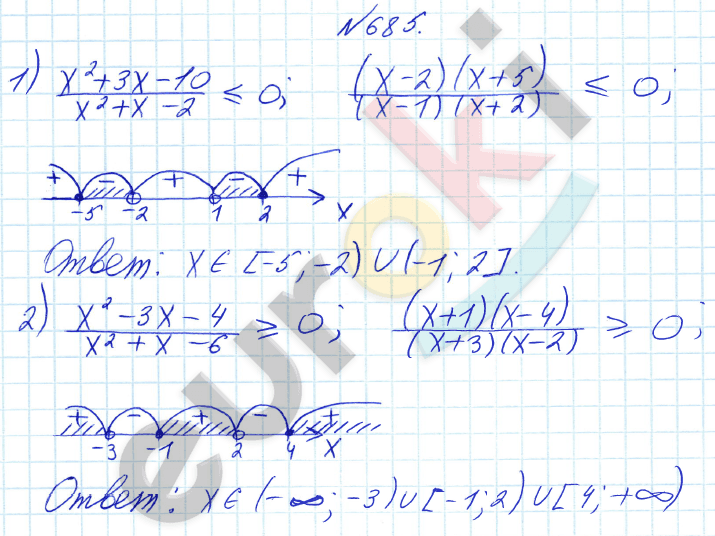 №685.
1) (x²+3x-10)/(x²+x-2) ≤ 0; ((x-2)(x+5))/((x-1)(x+2)) ≤ 0;
+ - + - +
-5 -2 1 2 x
Ответ: x ∈ [-5; -2) ∪ (-1; 2].
2) (x²-3x-4)/(x²+x-6) ≥ 0; ((x+1)(x-4))/((x+3)(x-2)) ≥ 0;
+ - + - +
-3 -1 2 4 x
Ответ: x ∈ (-∞; -3) ∪ [-1; 2) ∪ [4; +∞)
euroki